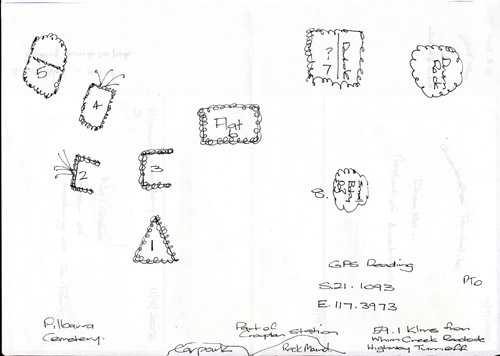 5
4
?
7
Flat
8
2
3
8.
1
GPS Reading
S.21.1093
E.117.3973
PTO
Pilbarra
Cemetery.
Part of
Croydon Station
Carpark
Rock Mound
59.1 Klms from
Whim Creek Roadside
Highway Turnoff